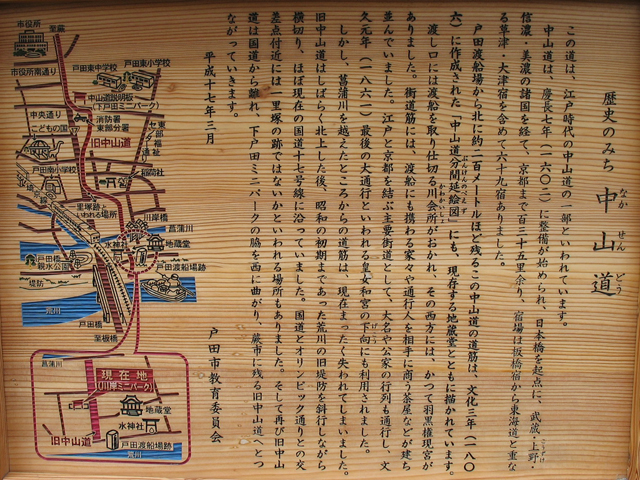 歴史のみち 中山道
なか せん どう
この道は、江戸時代の中山道の一部といわれています。
中山道は、慶長七年(一六〇二)に整備が始められ、日本橋を起点に、武蔵・上野・
こうずけ
信濃・美濃の諸国を経て、京都まで百三十五里余り、宿場は板橋宿から東海道と重な
る草津・大津宿を含めて六十九宿ありました。
戸田渡船場から北に約二百メートルほど残るこの中山道の道筋は、文化三年(一八〇
六)に作成された「中山道分間延絵図」にも、現存する地蔵堂とともに描かれています。
ぶんけんのべえず
渡し口には渡船を取り仕切る川会所がおかれ、その西方には、かつて羽黒権現宮が
かわかいしょ
ありました。街道筋には、渡船にも携わる家々や通行人を相手に商う茶屋などが建ち
並んでいました。江戸と京都を結ぶ主要街道として、大名や公家の行列も通行し、文
久元年(一八六一)最後の大通行といわれる皇女和宮の下向にも利用されました。
げこう
しかし、菖蒲川を越えたところからの道筋は、現在まったく失われてしまいました。
旧中山道はしばらく北上した後、昭和の初期まであった荒川の旧堤防を斜行しながら
横切り、ほぼ現在の国道十七号線に沿っていました。国道とオリンピック通りとの交
差点付近には一里塚の跡ではないかといわれる場所もありました。そして再び旧中山
道は国道から離れ、下戸田ミニパークの脇を西に曲がり、蕨市に残る旧中山道へとつ
ながっていきます。
平成十七年三月
戸田市教育委員会
市役所
至蕨
市役所南通り
戸田東中学校
戸田東小学校
中山道説明板
(下戸田ミニパーク)
中央通り
こどもの国
消防署
東部分署
旧中山道
東部福祉センター
稲荷社
戸田南小学校
一里塚跡と
いわれる場所
川岸橋
菖蒲川
水神社
地蔵堂
戸田渡船場跡
戸田橋
親水公園
堤防
荒川
戸田橋
至板橋
菖蒲川
現在地
(川岸ミニパーク)
地蔵堂
水神社
旧中山道
戸田渡船場跡
荒川